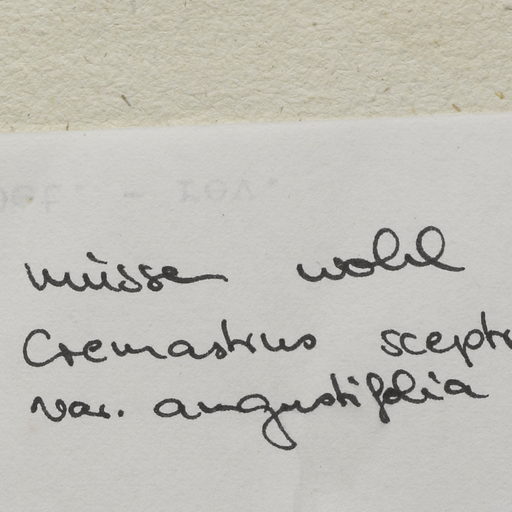 müssen wohl
Cremastrus sceptr
var. angustifolia